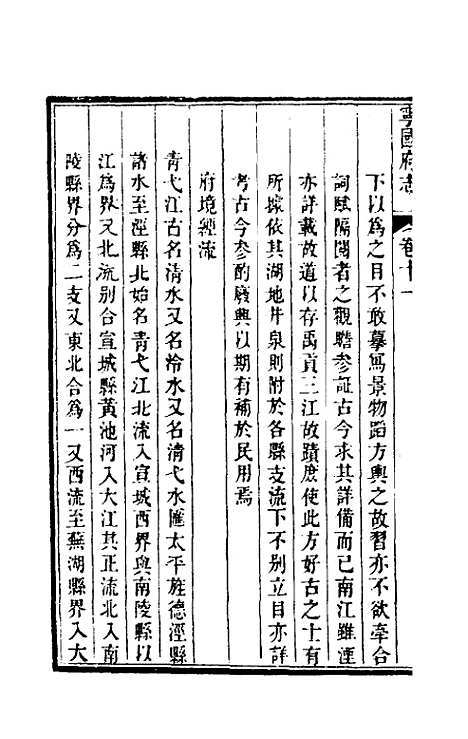 寧國府志 卷十一
下以爲之目不敢摹寫景物蹈方輿之故習亦不欲牽合
詞賦隔閡者之觀瞻參証古今求其詳備而已南江雖湮
亦詳載故道以存禹貢三江故蹟庶使此方好古之士有
所據依其湖地井泉則附於各縣支流下不別立目亦詳
考古今參酌廢興以期有補於民用焉
府境經流
青弋江古名清水又名泠水又名清弋水匯太平旌德涇縣
諸水至涇縣北始名青弋江北流入宣城西界與南陵縣以
江爲界又北流別合宣城縣黃池河入大江其正流北入南
陵縣界分爲二支又東北合爲一又西流至蕪湖縣界入大